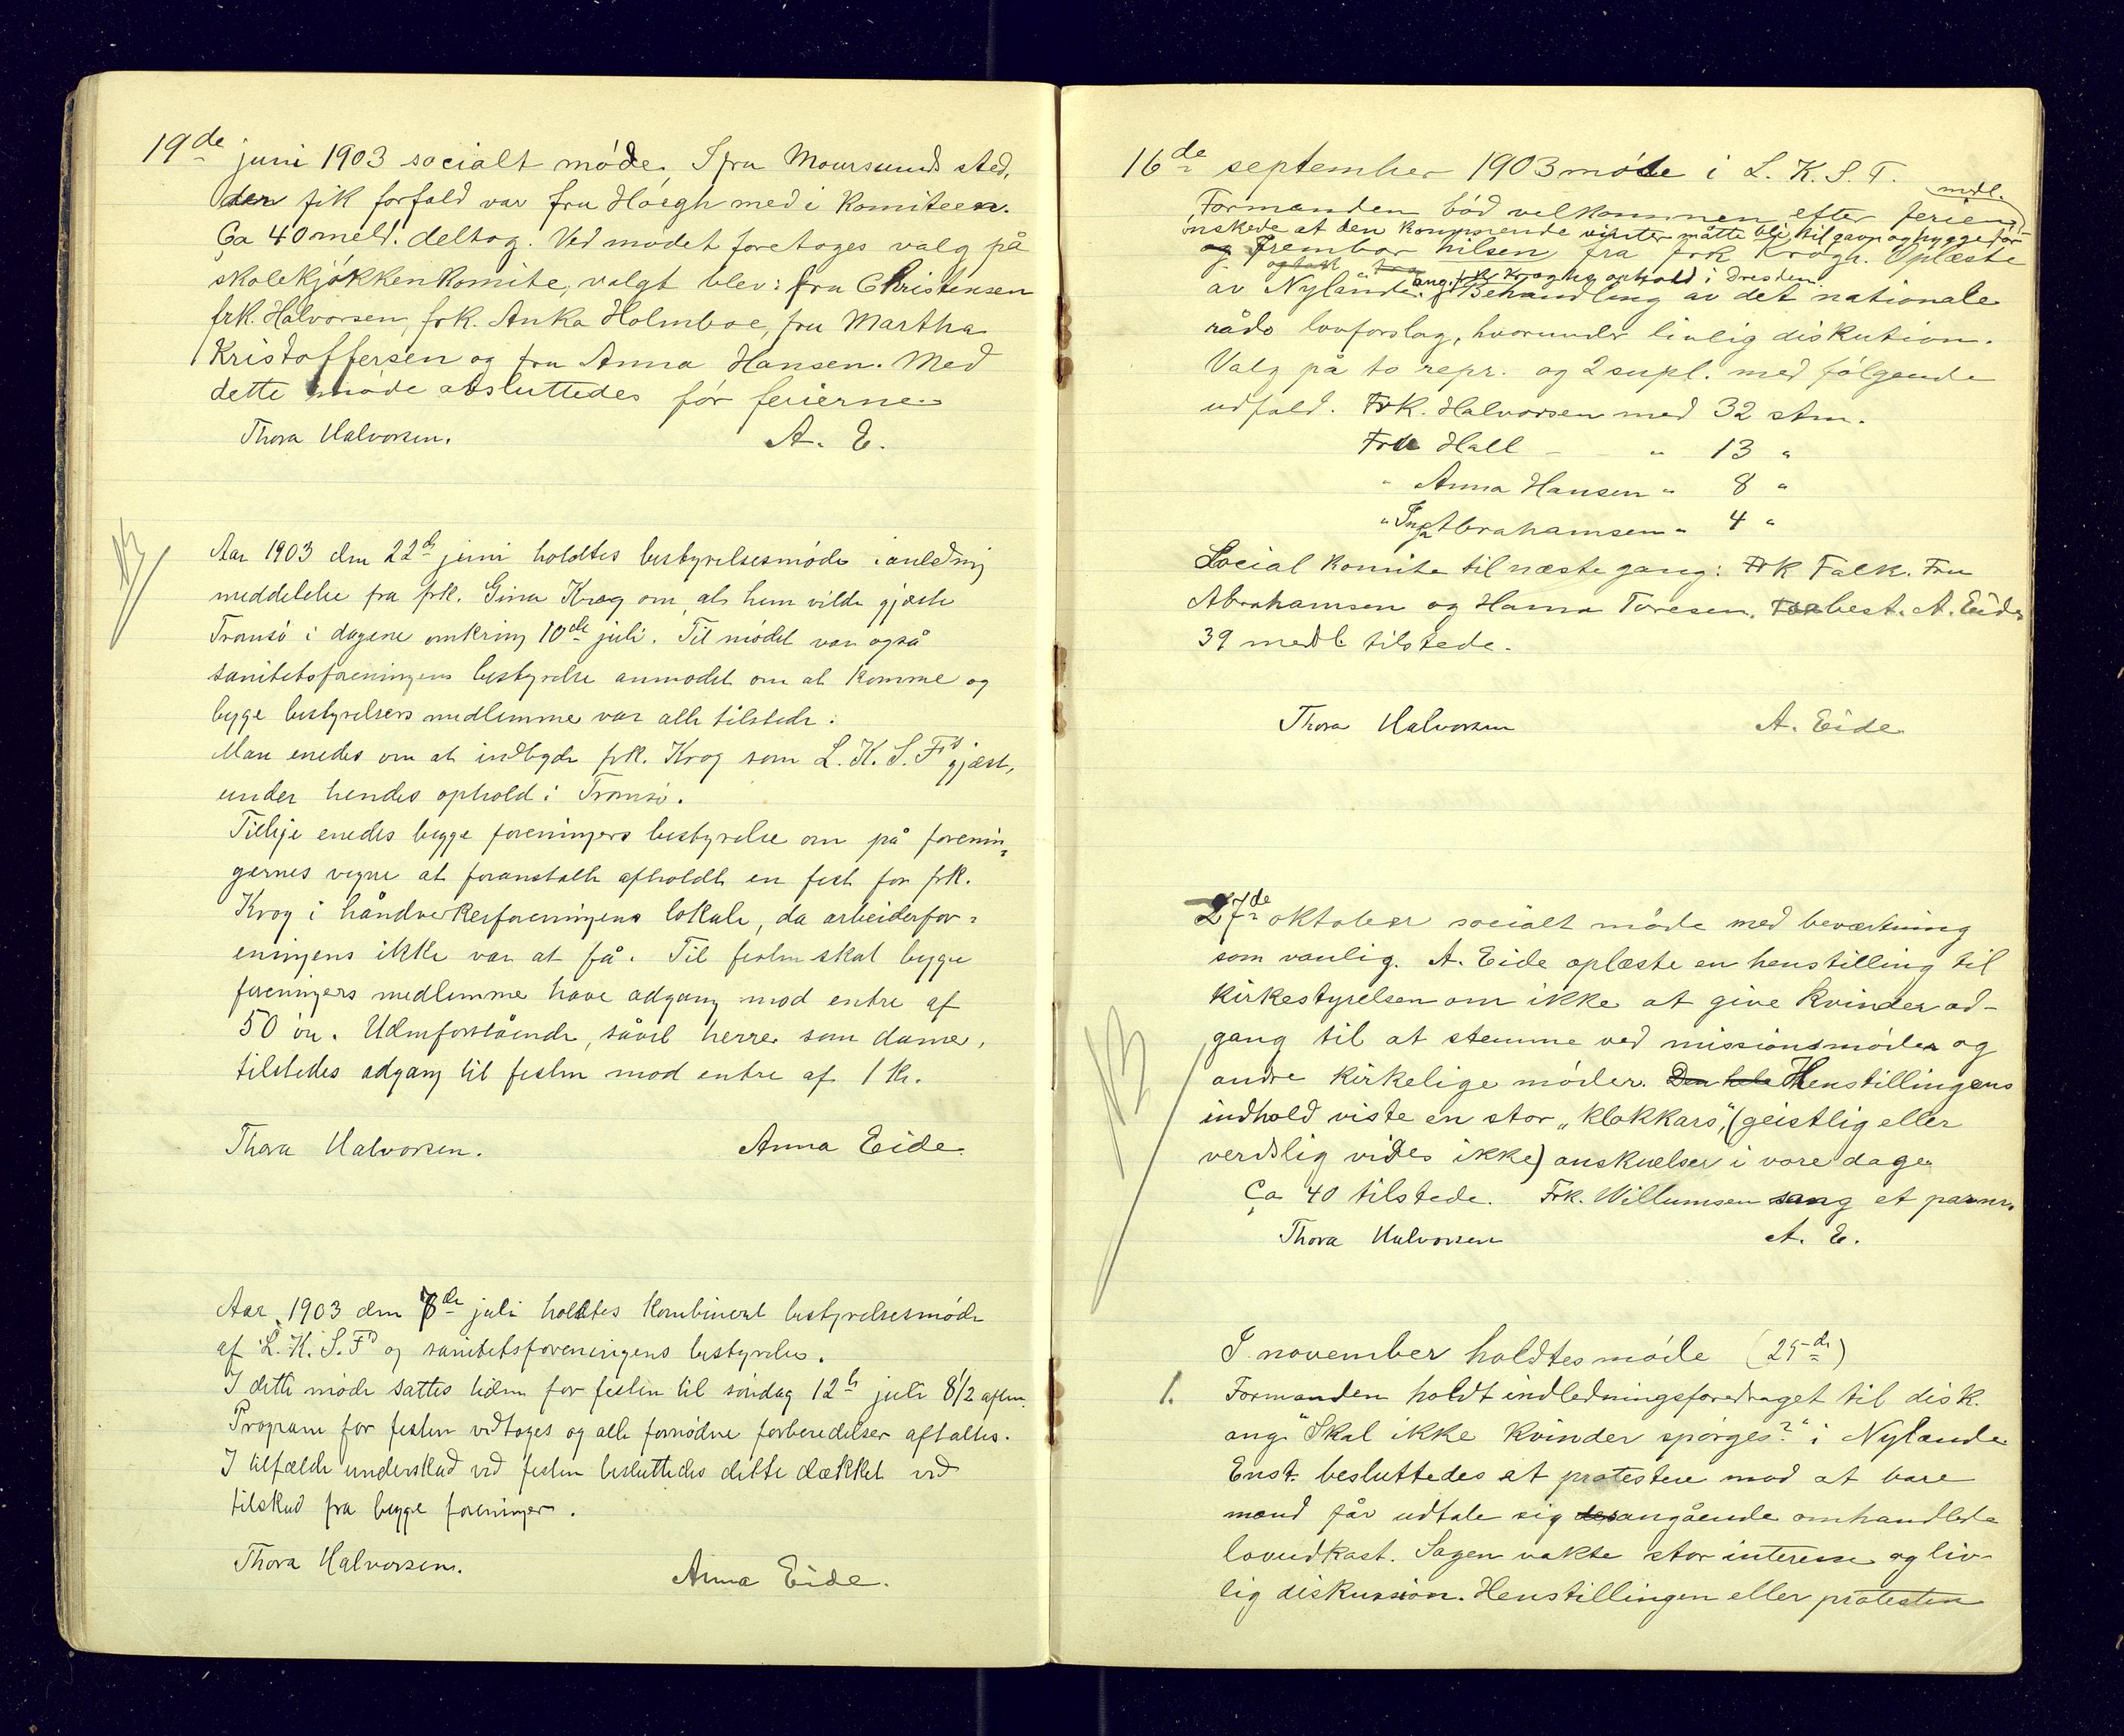 19de juni 1903 socialt møde. I fru Moursunds sted,
der fik forfald var fru Høegh med i komiteen.
Ca 40 meld. deltog. Ved mødet foretoges valg på
skolekjøkkenkomite, valgt blev: fru Christensen
frk. Halvorsen, frk. Anka Holmboe, fru Martha
Kristoffersen og fru Anna Hansen. Med
dette møde absluttedes før ferierne.
Thora Halvorsen. A. E.
Aar 1903 den 22d juni holdtes bestyrelsesmøde i anledning
meddelelse fra frk. Gina Krog om, at hun vilde gjæste
Tromsø i dagene omkring 10de juli. Til mødet var også
sanitetsforeningens bestyrelse anmodet om at komme og
begge bestyrelsers medlemme var alle tilstede.
Man enedes om at indbyde frk. Krog som L. K. S. Fs gjæst,
under hendes ophold i Tromsø.
Tillige enedes begge foreningers bestyrelse om på forenin=
gernes vegne at foranstalte afholdt en fest for frk.
Krog i håndverkerforeningens lokale, da arbeiderfor=
eningens ikke var at få. Til festen skal begge
foreningers medlemme have adgang mod entre af
50 øre. Udenforstående, såvel herrer som damer,
tilstedes adgang til festen mod entre af 1 kr.
Thora Halvorsen. Anna Eide.
Aar 1903 den 7de juli holdtes kombineret bestyrelsesmøde
af L. K. S. Fs og sanitetsforeningens bestyrelse.
I dette møde sattes tiden for festen til søndag 12te juli 8 1/2 aften.
Program for festen vedtoges og alle fornødne forberedelser aftaltes.
I tilfælde underskud ved festen besluttedes dette dækket ved
tilskud fra begge foreninger.
Thora Halvorsen. Anna Eide.
16de september 1903 møde i L. K. S. T.
Formanden bød velkommen efter ferien, medl.
ønskede at den kommende vinter måtte bli til gavn og hygge for
og Frembar hilsen fra frk Krogh. Oplæste
ang. frk Kroghs ophold i Dresden.
av Nylænde. Behandling av det nationale
råds lovforslag, hvorunder livlig diskution.
Valg på to repr. og 2 supl. med følgende
udfald. Frk. Halvorsen med 32 stm.
Fru Hall - " 13 "
" Anna Hansen " 8 "
" Inga Abrahamsen " 4 "
Social komite til næste gang: Frk Falk. Fru
Abrahamsen og Hanna Toresen. best. A. Eide
39 medl tilstede.
Thora Halvorsen A. Eide
27de oktober socialt møde med beværtning
som vanlig. A. Eide oplæste en henstilling til
kirkestyrelsen om ikke at give kvinder ad-
gang til at stemme ved missionsmøder og
andre kirkelige møder. Den hele Henstillingens
indhold viste en stor „klokkars", (geistlig eller
verdslig vides ikke) anskuelser i vore dage
Ca 40 tilstede. Frk. Willumsen sang et par nr.
Thora Halvorsen A. E.
I november holdtes møde (25de)
1. Formanden holdt indledningsforedraget til disk.
ang. "Skal ikke kvinder spørges?" i Nylænde
Enst. besluttedes at protestere mod at bare
mænd får udtale sig des angående omhandlede
lovudkast. Sagen vakte stor interesse og liv-
lig diskussion. Henstillingen eller protesten